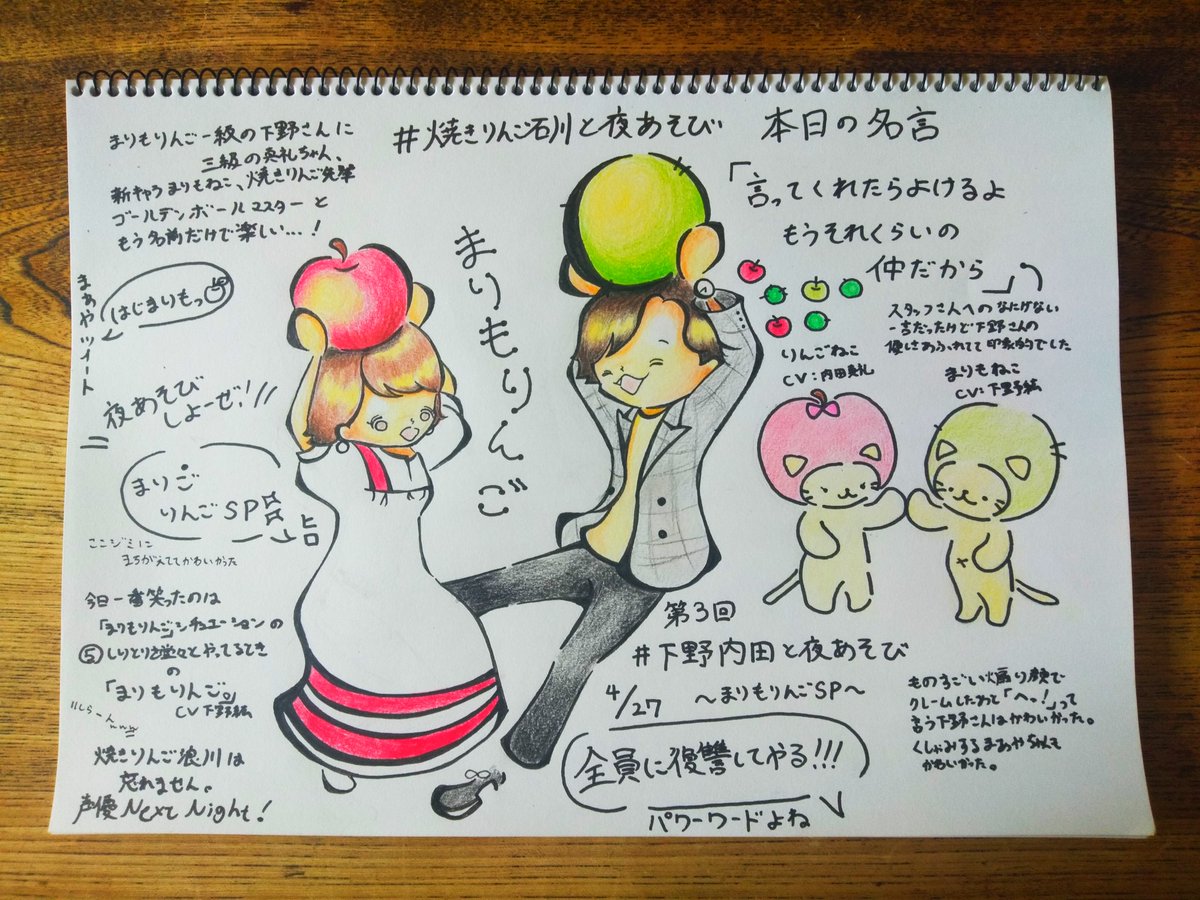 まりもりんご一級の下野さんに
三級の真礼ちゃん、
新キャラまりもねこ、焼きりんご先輩
ゴールデンボールマスターと
もう名前だけで楽しい…！
#焼きりんご石川と夜あそび
本日の名言
「言ってくれたらよけるよ
もうそれくらいの
仲だから」
スタッフさんへのなにげない
一言だったけど下野さんの
優しさあふれてて印象的でした
まぁやツイート
はじまりもっ
夜あそび
しよーぜ！！
まりご
りんごSP
ここジミに
まちがえててかわいかった
まりもりんご
りんごねこ
CV:内田真礼
まりもねこ
CV:下野紘
今日一番笑ったのは
「まりもりんご」シチュエーションの
⑤しりとりを堂々とやってるとき
の
「まりもりんご。」
CV下野紘
焼きりんご浪川は
忘れません。
声優Next Night！
第3回
#下野内田と夜あそび
4/27 〜まりもりんごSP〜
全員に復讐してやる!!!
パワーワードよね
ものすごい煽り顔で
クレームしたあと「へっ！」って
言う下野さんはかわいかった。
くしゃみするまあやちゃんも
かわいかった。